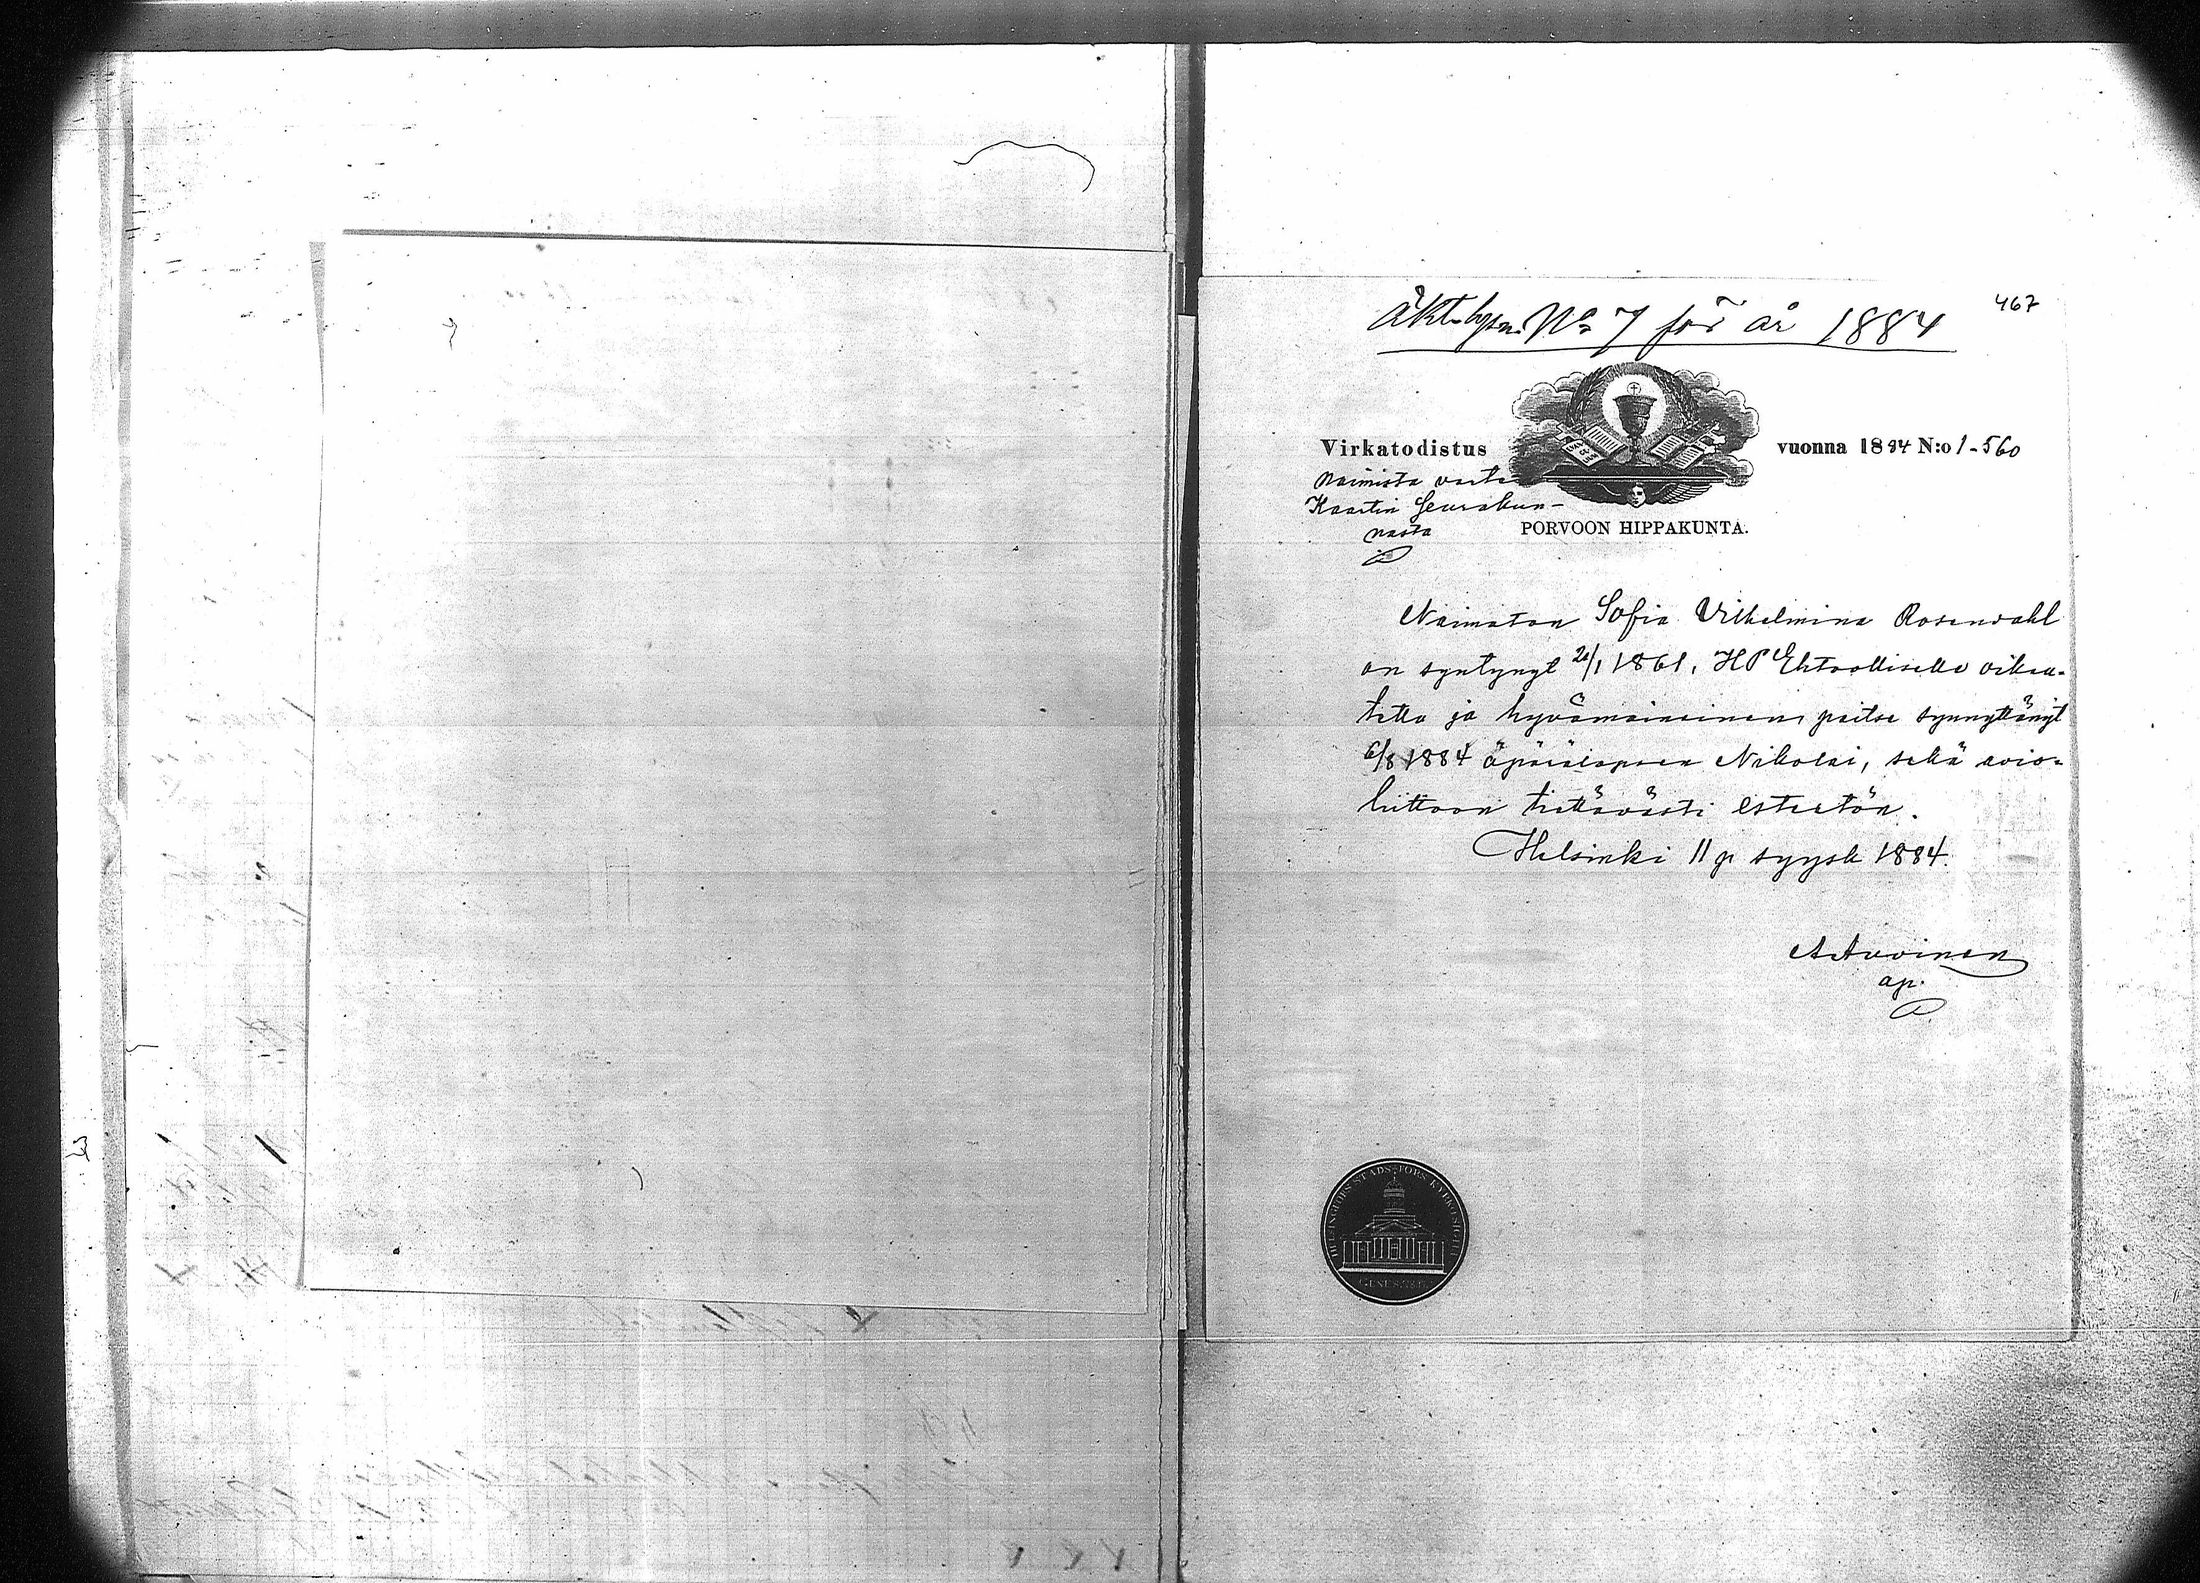 467
Äkt.lysn. No 7 för år 1884
Virkatodistus vuonna 1884 N:o 1-560
naimista varten
Kaartin Seurakun-
nasta
PORVOON HIPPAKUNTA.
Naimaton Sofia Vilhelmina Rosenvahl
on syntynyt 20/1 1861, HP Ehtoolliselle oikeu-
tettu ja hyvämaineinen, paitse synnyttänyt
6/8 1884 äpärälapsen Nikolai, sekä avio-
liittoon tiettävästi esteetön.
Helsinki 11 p syysk 1884.
A Auvinen
ap.
HELSINGFORS STADS-FÖRS. KYRKOSIGILL